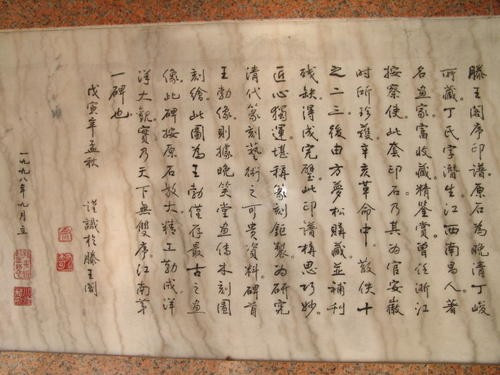 滕王阁序印谱原石为晚清丁峻
所藏丁氏字潜生江西南昌人著
名画家富收藏精鉴赏曾任浙江
按察使此套印石乃其为官安徽
时所珍护辛亥革命中散佚十
之二三後由方夢松購藏並補刊
残缺得成完璧此印谱構思巧妙
匠心獨運堪稱篆刻鉅製为研究
清代篆刻藝術之可贵资料碑首
王勃像則據晚笑堂画传木刻圖
刻绘此圖为王勃僅存最古之画
像此碑按原石放大精工勒成洋
洋大觀實乃天下無雙序江南第
一碑也
戊寅年孟秋
谨識於滕王阁
一九九八年九月立